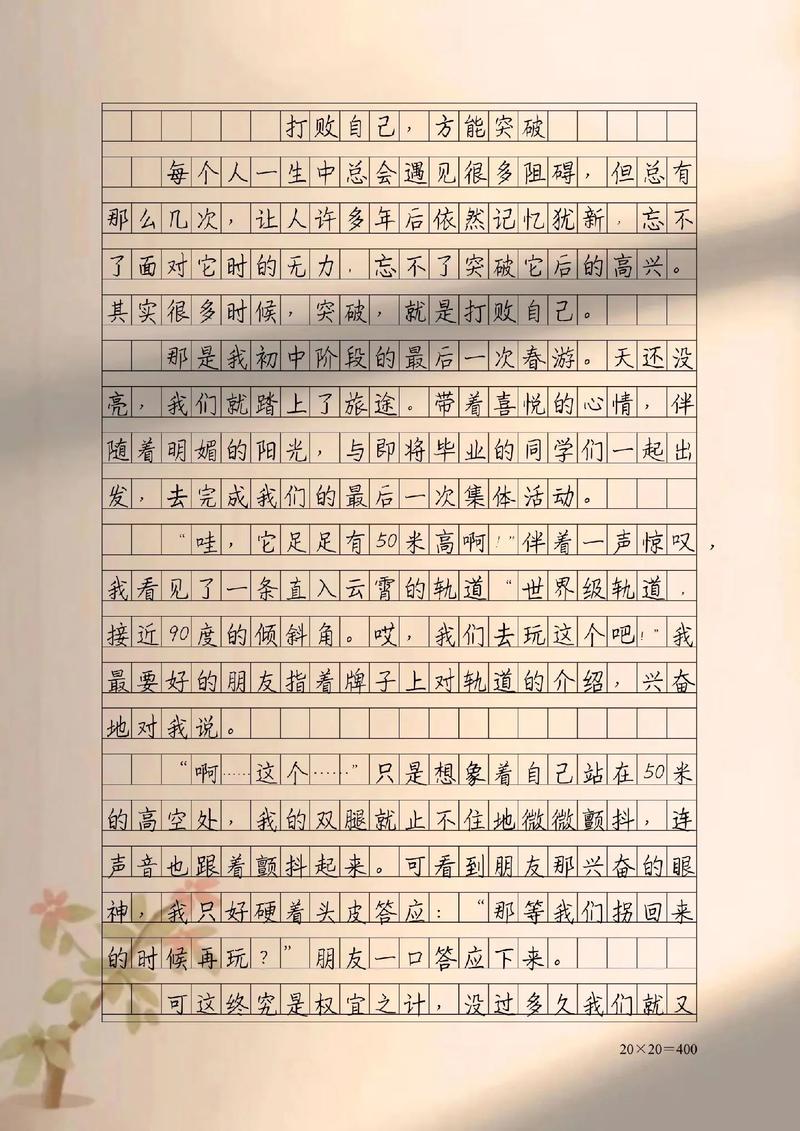 打败自己，方能突破
每个人一生中总会遇见很多阻碍，但总有
那么几次，让人许多年后依然记忆犹新，忘不
了面对它时的无力，忘不了突破它后的高兴。
其实很多时候，突破，就是打败自己。
那是我初中阶段的最后一次春游。天还没
亮，我们就踏上了旅途。带着喜悦的心情，伴
随着明媚的阳光，与即将毕业的同学们一起出
发，去完成我们的最后一次集体活动。
“哇，它足足有50米高啊！”伴着一声惊叹，
我看见了一条直入云霄的轨道“世界级轨道，
接近90度的倾斜角。哎，我们去玩这个吧！”我
最要好的朋友指着牌子上对轨道的介绍，兴奋
地对我说。
“啊……这个……”只是想象着自己站在50米
的高空处，我的双腿就止不住地微微颤抖，连
声音也跟着颤抖起来。可看到朋友那兴奋的眼
神，我只好硬着头皮答应：“那等我们拐回来
的时候再玩？”朋友一口答应下来。
可这终究是权宜之计，没过多久我们就又
20×20=400